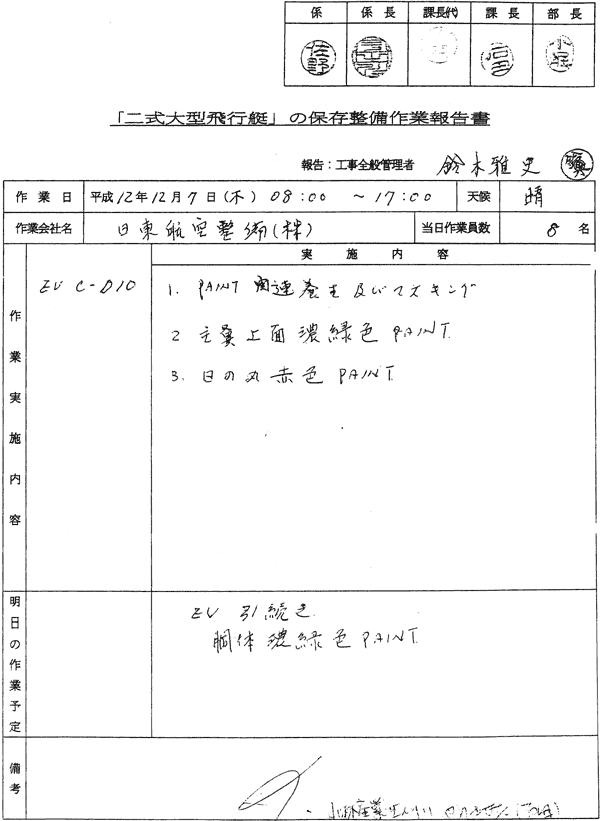 係 係長 課長(代) 課長 部長
佐野
「二式大型飛行艇」の保存整備作業報告書
報告：工事全般管理者 鈴木雅史
作業日 平成12年12月7日(木) 08:00 ～17:00 天候 晴
作業会社名 日東航空整備(株) 当日作業員数 8名
作業実施内容
実施内容
EV C-D10
1. PAINT 関連養生及びマスキング
2 主翼上面濃緑色PAINT.
3. 日の丸赤色PAINT.
明日の作業予定
EV 引続き
胴体濃緑色PAINT.
備考